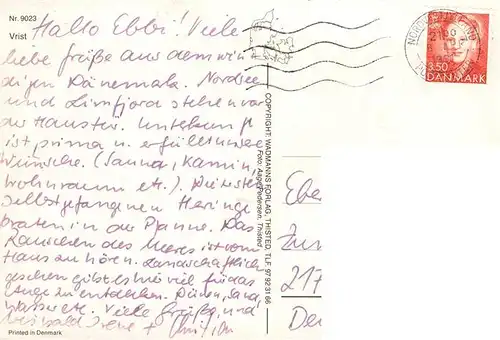 Nr. 9023
Vrist
Hallo Ebbi! Viele
liebe Grüße aus dem win
digen Dänemark. Nordsee
und Limfjord stehen vor
der Haustür. Unterkunft
ist prima u. erfüllt unsere
Wünsche. (Sauna, Kamin,
Wohnraum etc.). Die
selbstgefangenen Heringe
braten in der Pfanne. Das
Rauschen des Meeres ist vom
Haus zu hören. Landschaftlich
gesehen gibt es hier viel für das
Auge zu entdecken. Dünen, Sand,
Wasser etc. Viele Grüße, und
bis bald Irene +
Printed in Denmark
COPYRIGHT: WADMANNS FORLAG, THISTED. TLF. 97 92 31 66
Foto: Aage Pedersen, Thisted
3.50
DANMARK
Ebe
Zur
217
De